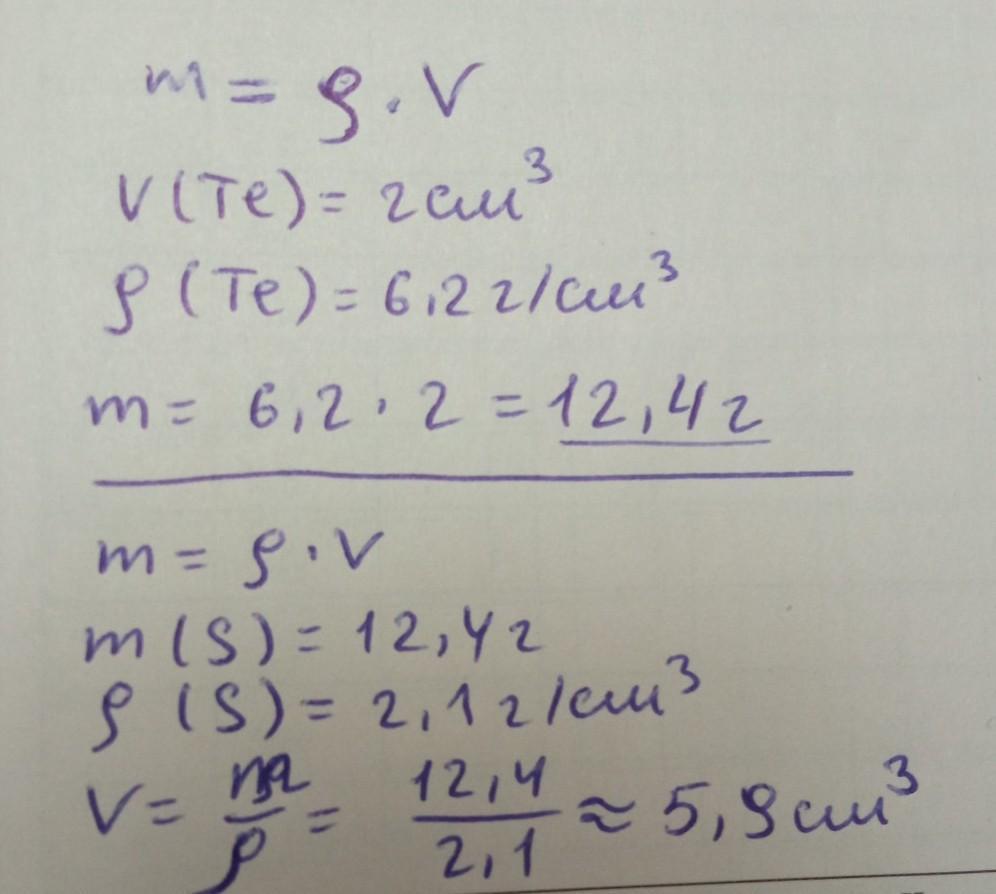 m = ρ · V
V (Te) = 2 см³
ρ (Te) = 6,2 г/см³
m = 6,2 · 2 = 12,4 г
m = ρ · V
m (S) = 12,4 г
ρ (S) = 2,1 г/см³
V = m/ρ = 12,4/2,1 ≈ 5,9 см³